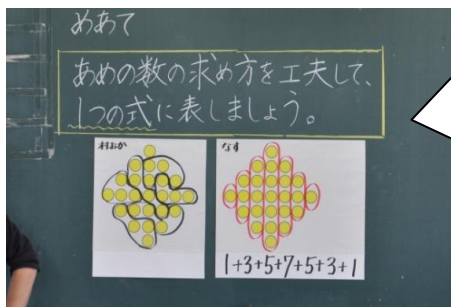 めあて
あめの数の求め方を工夫して、
1つの式に表しましょう。
村おか
なす
1+3+5+7+5+3+1